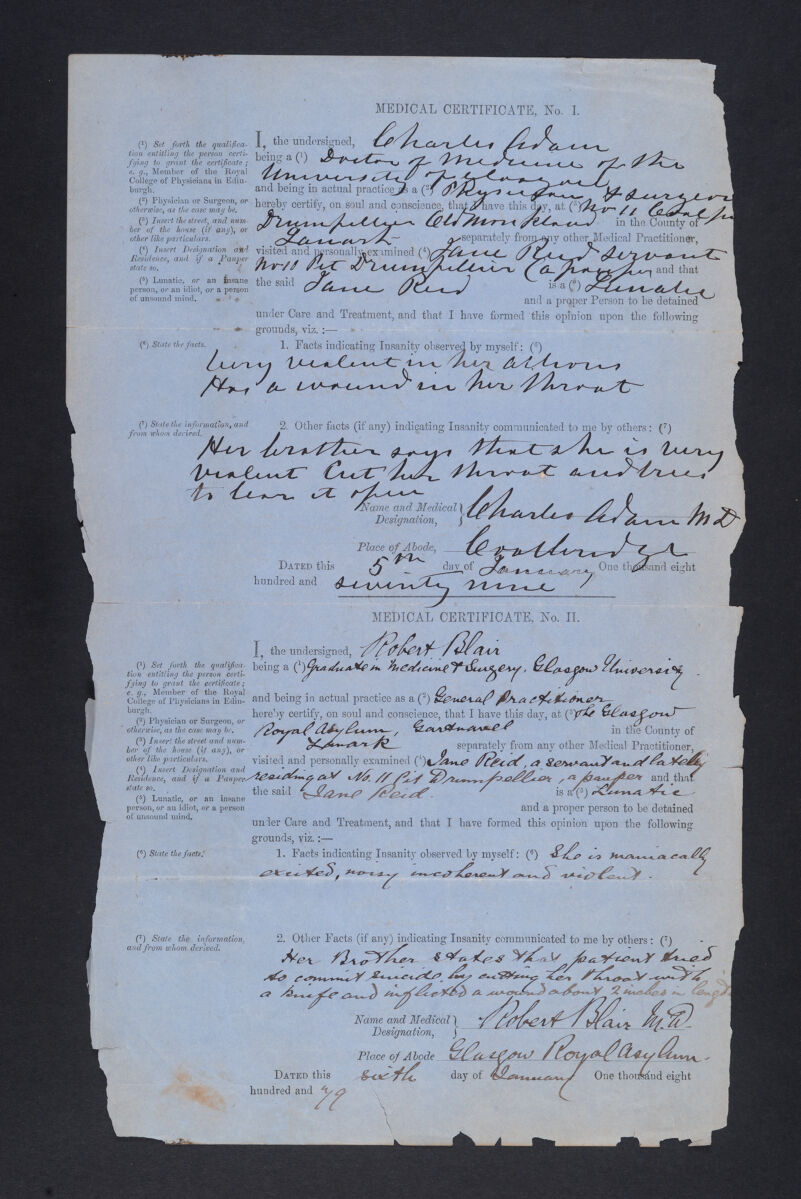 MEDICAL CERTIFICATE, No. I.
(¹) Set forth the qualifica-
tion entitling the person certi-
fying to grant the certificate;
e. g., Member of the Royal
College of Physicians in Edin-
burgh.
(²) Physician or Surgeon, or
otherwise, as the case may be.
(³) Insert the street, and num-
ber of the house (if any), or
other like particulars.
(⁴) Insert Designation and
Residence, and if a Pauper
state so.
(⁵) Lunatic, or an insane
person, or an idiot, or a person
of unsound mind.
I, the undersigned, Charles Adam
being a (¹) Doctor of Medicine of the
University of Glasgow
and being in actual practice as a (²) Physician & Surgeon
hereby certify, on soul and conscience, that I have this day, at (³) No 11 Coal pit
Drumpellier Old Monkland in the County of
Lanark separately from any other Medical Practitioner,
visited and personally examined (⁴) Jane Reid Servant
No 11 Pit Drumpellier (a pauper and that
the said Jane Reid is a (⁵) Lunatic
and a proper Person to be detained
under Care and Treatment, and that I have formed this opinion upon the following
grounds, viz. :—
(⁶) State the facts.
1. Facts indicating Insanity observed by myself: (⁶)
Very violent in her actions
Has a wound in her throat
(⁷) State the information, and
from whom derived.
2. Other facts (if any) indicating Insanity communicated to me by others: (⁷)
Her brother says that she is very
violent Cut her throat and tries
to tear it open
Name and Medical
Designation, Charles Adam MD
Place of Abode, Coatbridge
DATED this 5th day of January One thousand eight
hundred and seventy nine
MEDICAL CERTIFICATE, No. II.
(¹) Set forth the qualifica-
tion entitling the person certi-
fying to grant the certificate;
e. g., Member of the Royal
College of Physicians in Edin-
burgh.
(²) Physician or Surgeon, or
otherwise, as the case may be.
(³) Insert the street and num-
ber of the house (if any), or
other like particulars.
(⁴) Insert Designation and
Residence, and if a Pauper
state so.
(⁵) Lunatic, or an insane
person, or an idiot, or a person
of unsound mind.
I, the undersigned, Robert Blair
being a (¹) Graduate in Medicine & Surgery. Glasgow University
and being in actual practice as a (²) General Practitioner
hereby certify, on soul and conscience, that I have this day, at (³) the Glasgow
Royal Asylum, Gartnavel in the County of
Lanark separately from any other Medical Practitioner,
visited and personally examined (⁴) Jane Reid, a servant and lately
residing at No. 11 Pit Drumpellier, a pauper and that
the said Jane Reid. is a (⁵) Lunatic
and a proper person to be detained
under Care and Treatment, and that I have formed this opinion upon the following
grounds, viz. :—
(⁶) State the facts.
1. Facts indicating Insanity observed by myself: (⁶) She is maniacally
excited, noisy incoherent and violent.
(⁷) State the information,
and from whom derived.
2. Other Facts (if any) indicating Insanity communicated to me by others: (⁷)
Her Brother states that patient tried
to commit suicide by cutting her throat with
a knife and inflicted a wound about 2 inches in length
Name and Medical
Designation, Robert Blair M.D.
Place of Abode Glasgow Royal Asylum.
DATED this sixth day of January One thousand eight
hundred and 79